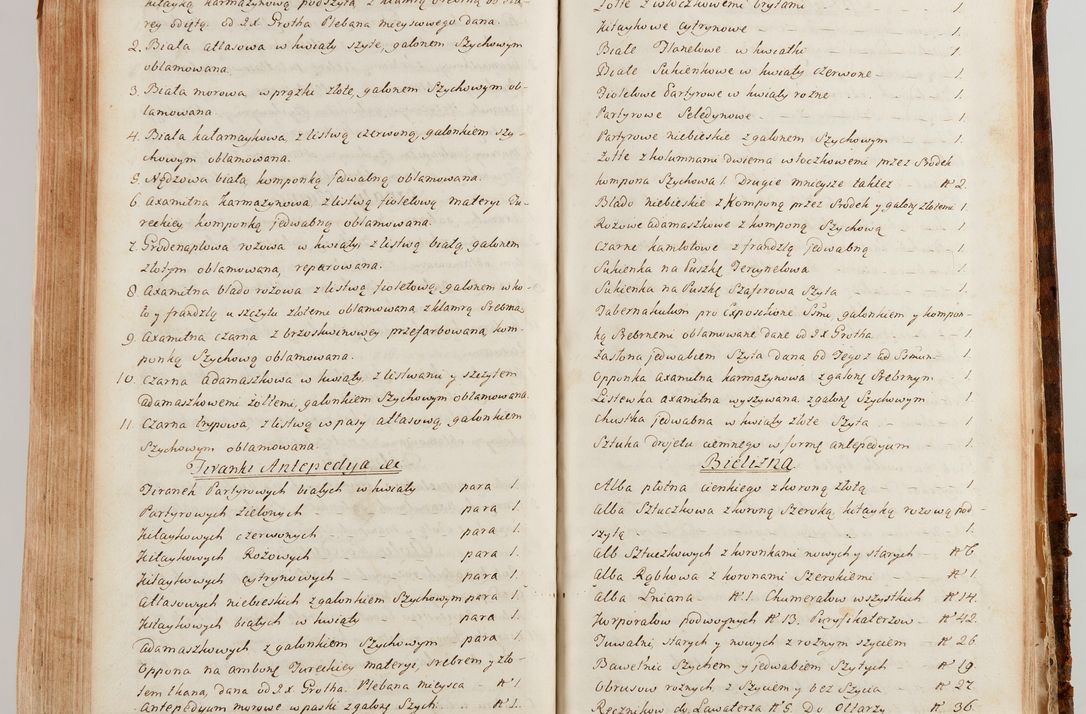 kitayką karmazynową podszyta, z klamrą srebrną
rey odiętą. od J.X. Grotha Plebana mieyscowego dana.
2. Biała atłasowa w kwiaty szyte, galonem Szychowym
oblamowana.
3. Biała morowa w prążki złote, galonem Szychowym ob-
lamowana
4. Biała katarnaykowa, z listwą czerwoną, galonkiem szy-
chowym oblamowana.
5. Nędzowa biała, komponką jedwabną oblamowana.
6 Axamitna karmazynowa z listwą fioletową materyi Tu-
reckiey komponką jedwabną oblamowana.
7. Grodenaplowa rożowa w kwiaty, z listwą białą, galonem
złotym oblamowana, reparowana.
8. Axamitna blado rożowa z listwą fioletową, galonem w ko-
ło y frandzlą u szczytu złotemi oblamowana z klamrą Srebrną
9. Axamitna czarna z brzoskwinowey przefarbowana, kom-
ponką Szychową oblamowana.
10. Czarna adamaszkowa w kwiaty, z listwami y szczytem
adamaszkowemi żołtemi, galonkiem Szychowym oblamowana.
11. Czarna trypowa, z listwą w pasy atłasową, galonkiem
Szychowym oblamowana.
Firanki Antepedya &c
Firanek Partyrowych białych w kwiaty para 1.
Partyrowych zielonych para 1.
Kitaykowych czerwonych para 1.
Kitaykowych Rożowych para 1.
Kitaykowych cytrynowych para 1.
Atłasowych niebieskich z galonkiem Szychowym para 1.
Kitaykowych białych w kwiaty para 1.
Adamaszkowych z galonkiem Szychowym para 1.
Oppona na ambonę Tureckiey materyi, srebrem y zło-
tem tkana, dana od J.X. Grotha. Plebana mieysca N 1
Antepedyum morowe w paski z galonę Szych: N 1.
Żołte z włoczkowemi brytami 1.
Kitaykowe cytrynowe 1.
Białe Flanelowe w kwiatki 1.
Białe Sukienkowe w kwiaty czerwone 1.
Fioletowe Partyrowe w kwiaty rożne 1.
Partyrowe Seledynowe 1.
Partyrowe niebieskie z galonem Szychowym 1.
Żołte z kolumnami dwiema włoczkowemi przez Srodek
kompona Szychowa 1. Drugie mnieysze takież N 2.
Blado niebieskie z Komponą przez Srodek y galonę złotemi 1.
Rożowe adamaszkowe z komponą Szychową 1.
Czarne kamlotowe z frandzlą jedwabną 1.
Sukienka na Puszkę Tercynelowa 1.
Sukienka na Puszkę Szafirowa Szyta 1.
Tabernakulum pro Expositione Ssmi galonkiem y kompon-
ką Srebrnemi oblamowane dane od J.X Grotha 1.
Zasłona jedwabiem Szyta dana od Tegoż ad Ssmum 1.
Opponka axamitna karmazynowa z galonę Srebrnym 1.
Listewka axamitna wyszywana z galonę Szychowym 1.
Chustka jedwabna w kwiaty złote Szyta 1.
Sztuka drojetu ciemnego w formę antepedyum 1.
Bielizna
Alba płotna cienkiego z koroną złotą 1.
Alba Sztuczkowa z koroną Szeroką, kitayką rożową pod-
szyta 1.
Alb Sztuczkowych z koronkami nowych y starych N 6
Alba Rąbkowa z koronami Szerokiemi N 1.
Alba Lniana N 1. Chumerałow wszystkich N 14.
Korporałow podwoynych N 13. Puryfikaterzow N 42.
Tuwalni starych y nowych z rożnym szyciem N 26
Bawełnic Szychem y jedwabiem Szytych N 19.
Obrusow rożnych, z Szyciem y bez Szycia N 27.
Ręcznikow do Lawaterza N 5. Do Ołtarzy N 36.